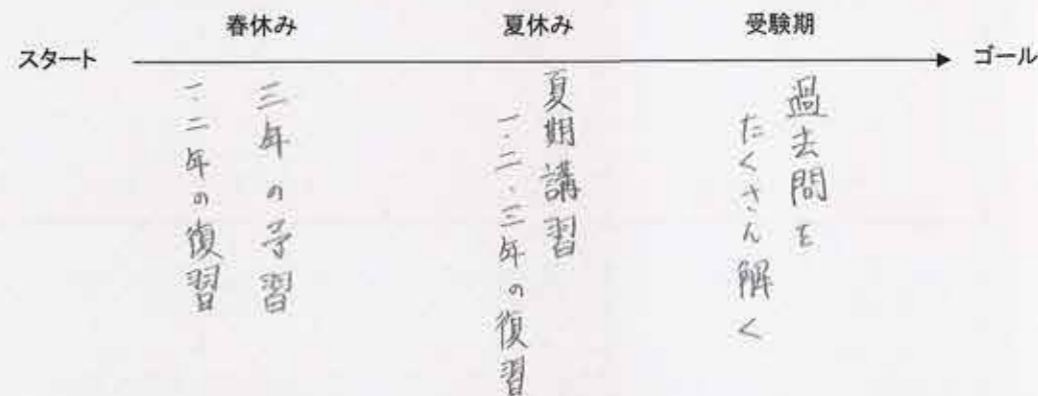 春休み
夏休み
受験期
スタート
ゴール
三年の予習
一・二年の復習
夏期講習
一・二・三年の復習
過去問を
たくさん解く